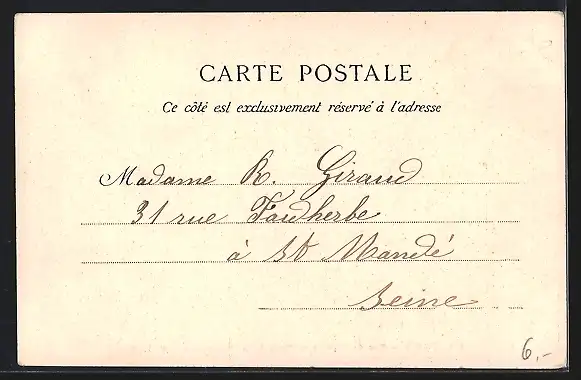 CARTE POSTALE
Ce côté est exclusivement réservé à l'adresse
Madame R. Giraud
31 rue Faidherbe
à St Mandé
Seine
6,-